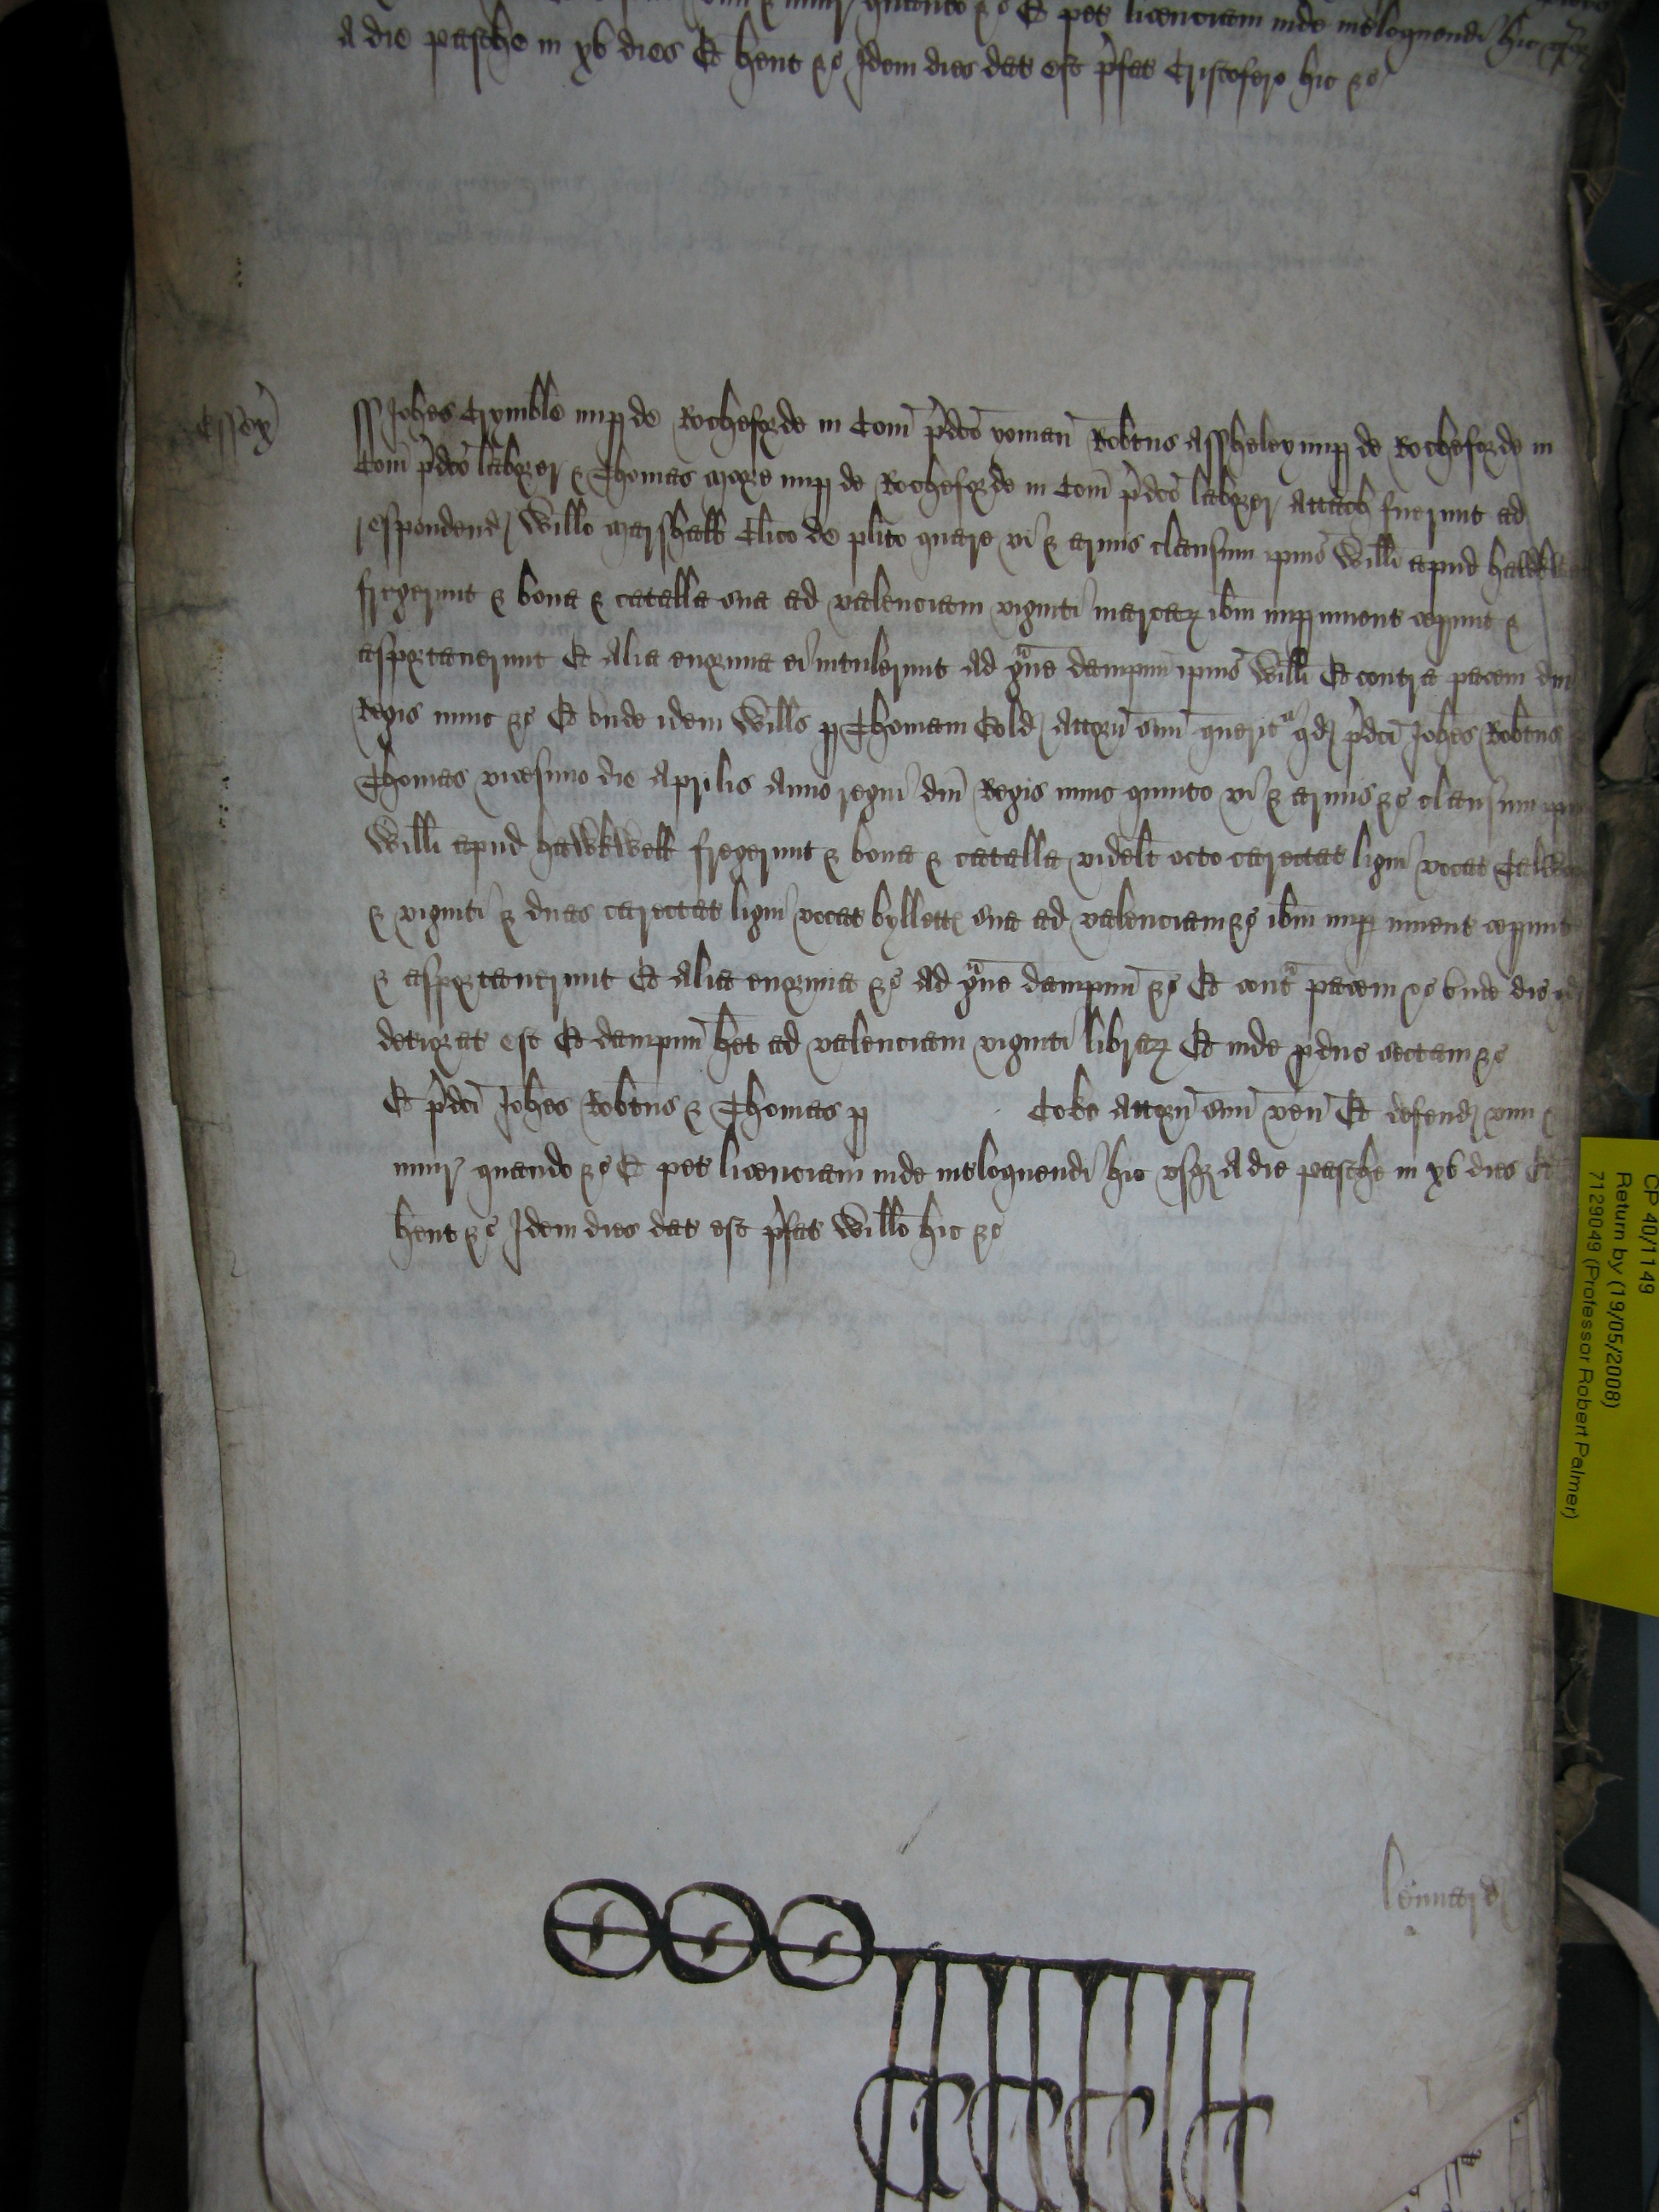 A die pasche in xv dies Et hent &c Idem dies dat est p'fat Cristofero hic &c
Essex
ss Johes Trymble nup de Rocheforde in Com p'dco yoman Robtus Assheley nup de Rocheforde in
Com p'dco laborer & Thomas More nup de Rocheforde in Com p'dco laborer attach fuerunt ad
respondend Willo Marshall Clico de plito quare vi & armis clausum ipius Willi apud
fregerunt & bona & catalla sua ad valenciam viginti marcar ibm nup inuent ceperunt &
asportauerunt Et Alia enormia ei intulerunt Ad g'ue dampnum ipius Willi Et contra pacem dni
Regis nunc &c Et unde idem Wills p Thomam Cold Attorn suu querit' qd p'dci Johes Robtus
Thomas vicesimo die Aprilis Anno regni dni Regis nunc quinto vi & armis &c clausum
Willi apud Hawkwell fregerunt & bona & catalla videlt octo carectat ligni vocat
& viginti & duas carectat ligni vocat byllett sua ad valenciam &c ibm nup inuent ceperunt
& asportauerunt Et Alia enormia &c Ad g'ue dampnum &c Et cont' pacem &c unde dic
deteriorat est Et dampnum het ad valenciam viginti librar Et inde p'duc sectam &c
Et p'dci Johes Robtus & Thomas p Coke Attorn suu ven Et defend vim
iniur quando &c Et pet licenciam inde int'loquendi hic usq A die pasche in xv dies Et
hent &c Idem dies dat est p'fat Willo hic &c
CP 40/1149
Return by (19/05/2008)
7129049 (Professor Robert Palmer)